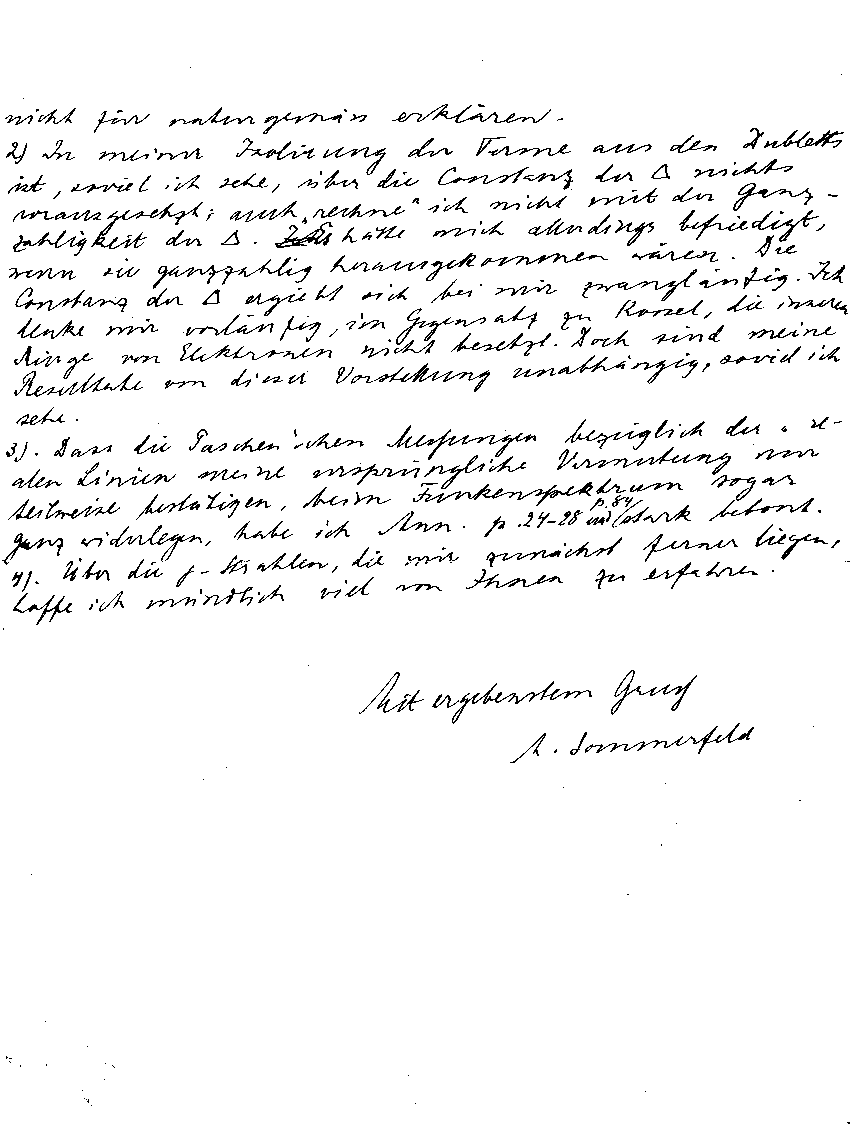 nicht für naturgemäss erklären.
2) In meiner Isolierung der Terme aus den Dubletts
ist, soviel ich sehe, über die Constanz der Δ nichts
vorausgesetzt; auch „rechne" ich nicht mit der Ganz-
zahligkeit der Δ. Es hätte mich allerdings befriedigt,
wenn sie ganzzahlig herausgekommen wären. Die
Constanz der Δ ergiebt sich bei mir zwangläufig. Ich
denke mir vorläufig, im Gegensatz zu Kossel, die inneren
Ringe von Elektronen nicht besetzt. Doch sind meine
Resultate von dieser Vorstellung unabhängig, soviel ich
sehe.
3). Dass die Paschen'schen Messungen bezüglich der „re-
alen Linien meine ursprüngliche Vermutung nur
teilweise bestätigen, beim Funkenspektrum sogar
ganz widerlegen, habe ich Ann. p. 24-28 und p. 84 stark betont.
4). Über die γ-Strahlen, die mir zunächst ferner liegen,
hoffe ich mündlich viel von Ihnen zu erfahren.
Mit ergebenstem Gruß
A. Sommerfeld